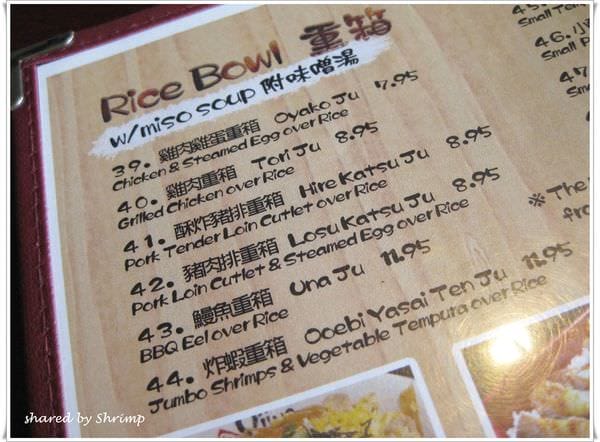 Rice Bowl 重箱
w/miso soup 附味噌湯
39. 雞肉雞蛋重箱 Oyako Ju 7.95
Chicken & Steamed Egg over Rice
40. 雞肉重箱 Tori Ju 8.95
Grilled Chicken over Rice
41. 酥炸豬排重箱 Hire Katsu Ju 8.95
Pork Tender Loin Cutlet over Rice
42. 豬肉排重箱 Losu Katsu Ju 8.95
Pork Loin Cutlet & Steamed Egg over Rice
43. 鰻魚重箱 Una Ju 11.95
BBQ Eel over Rice
44. 炸蝦重箱 Ooebi Yasai Ten Ju 11.95
Jumbo Shrimps & Vegetable Tempura over Rice
45.
Small
46.
Small
47.
※ The
shared by Shrimp